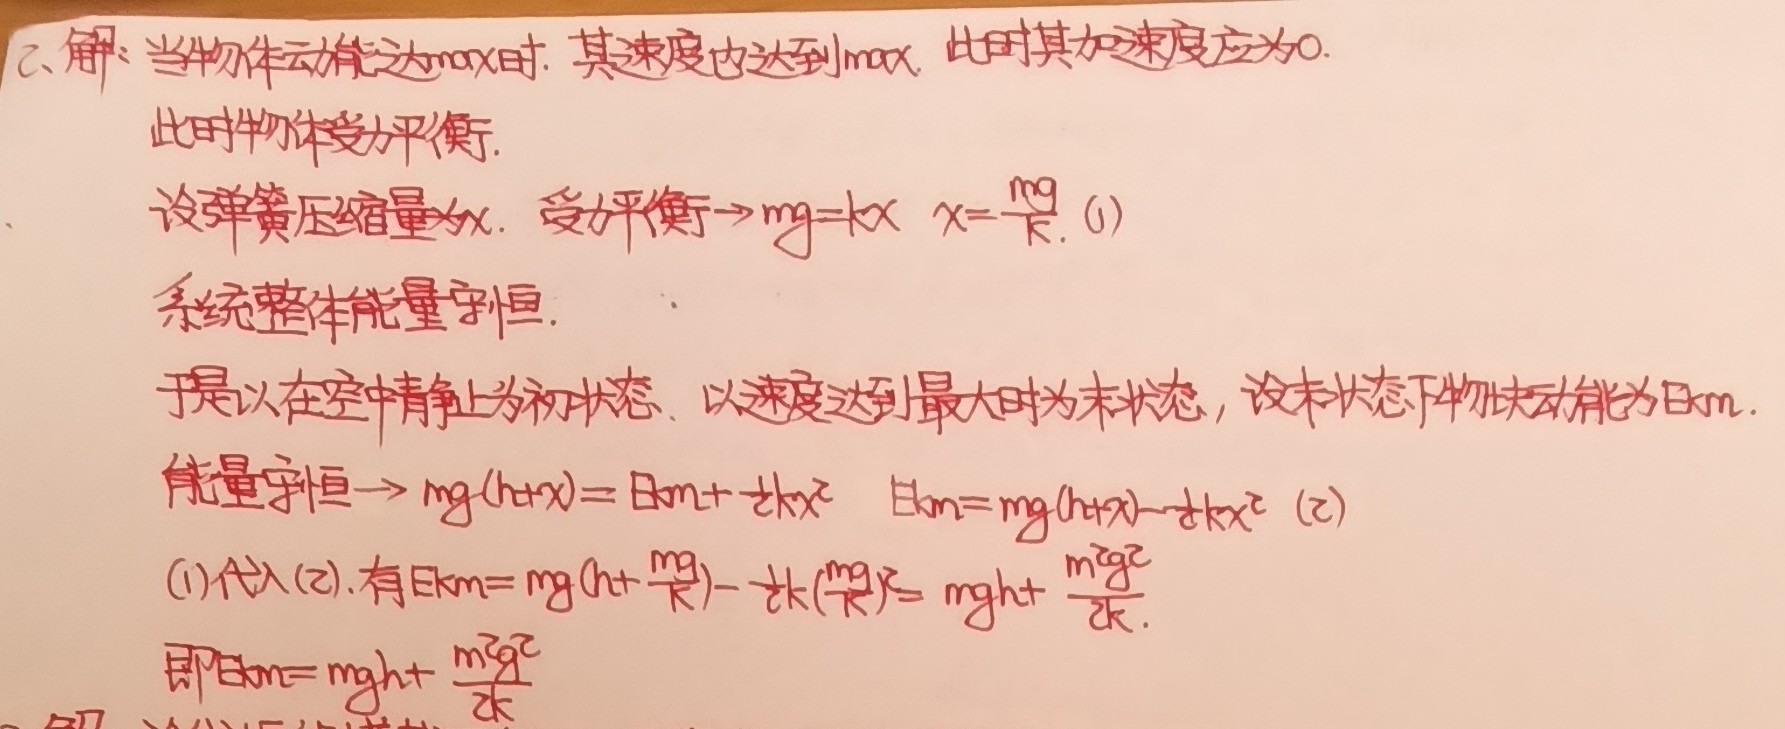 2、解：当物体动能达max时. 其速度也达到max. 此时其加速度应为0.
此时物体受力平衡.
设弹簧压缩量为x. 受力平衡→mg=kx x=mg/k. (1)
系统整体能量守恒.
于是以在空中静止为初状态、以速度达到最大时为末状态，设末状态下物块动能为Ekm.
能量守恒→mg(h+x)=Ekm+½kx² Ekm=mg(h+x)-½kx² (2)
(1)代入(2).有Ekm=mg(h+mg/k)-½k(mg/k)²=mgh+m²g²/2k.
即Ekm=mgh+m²g²/2k
解